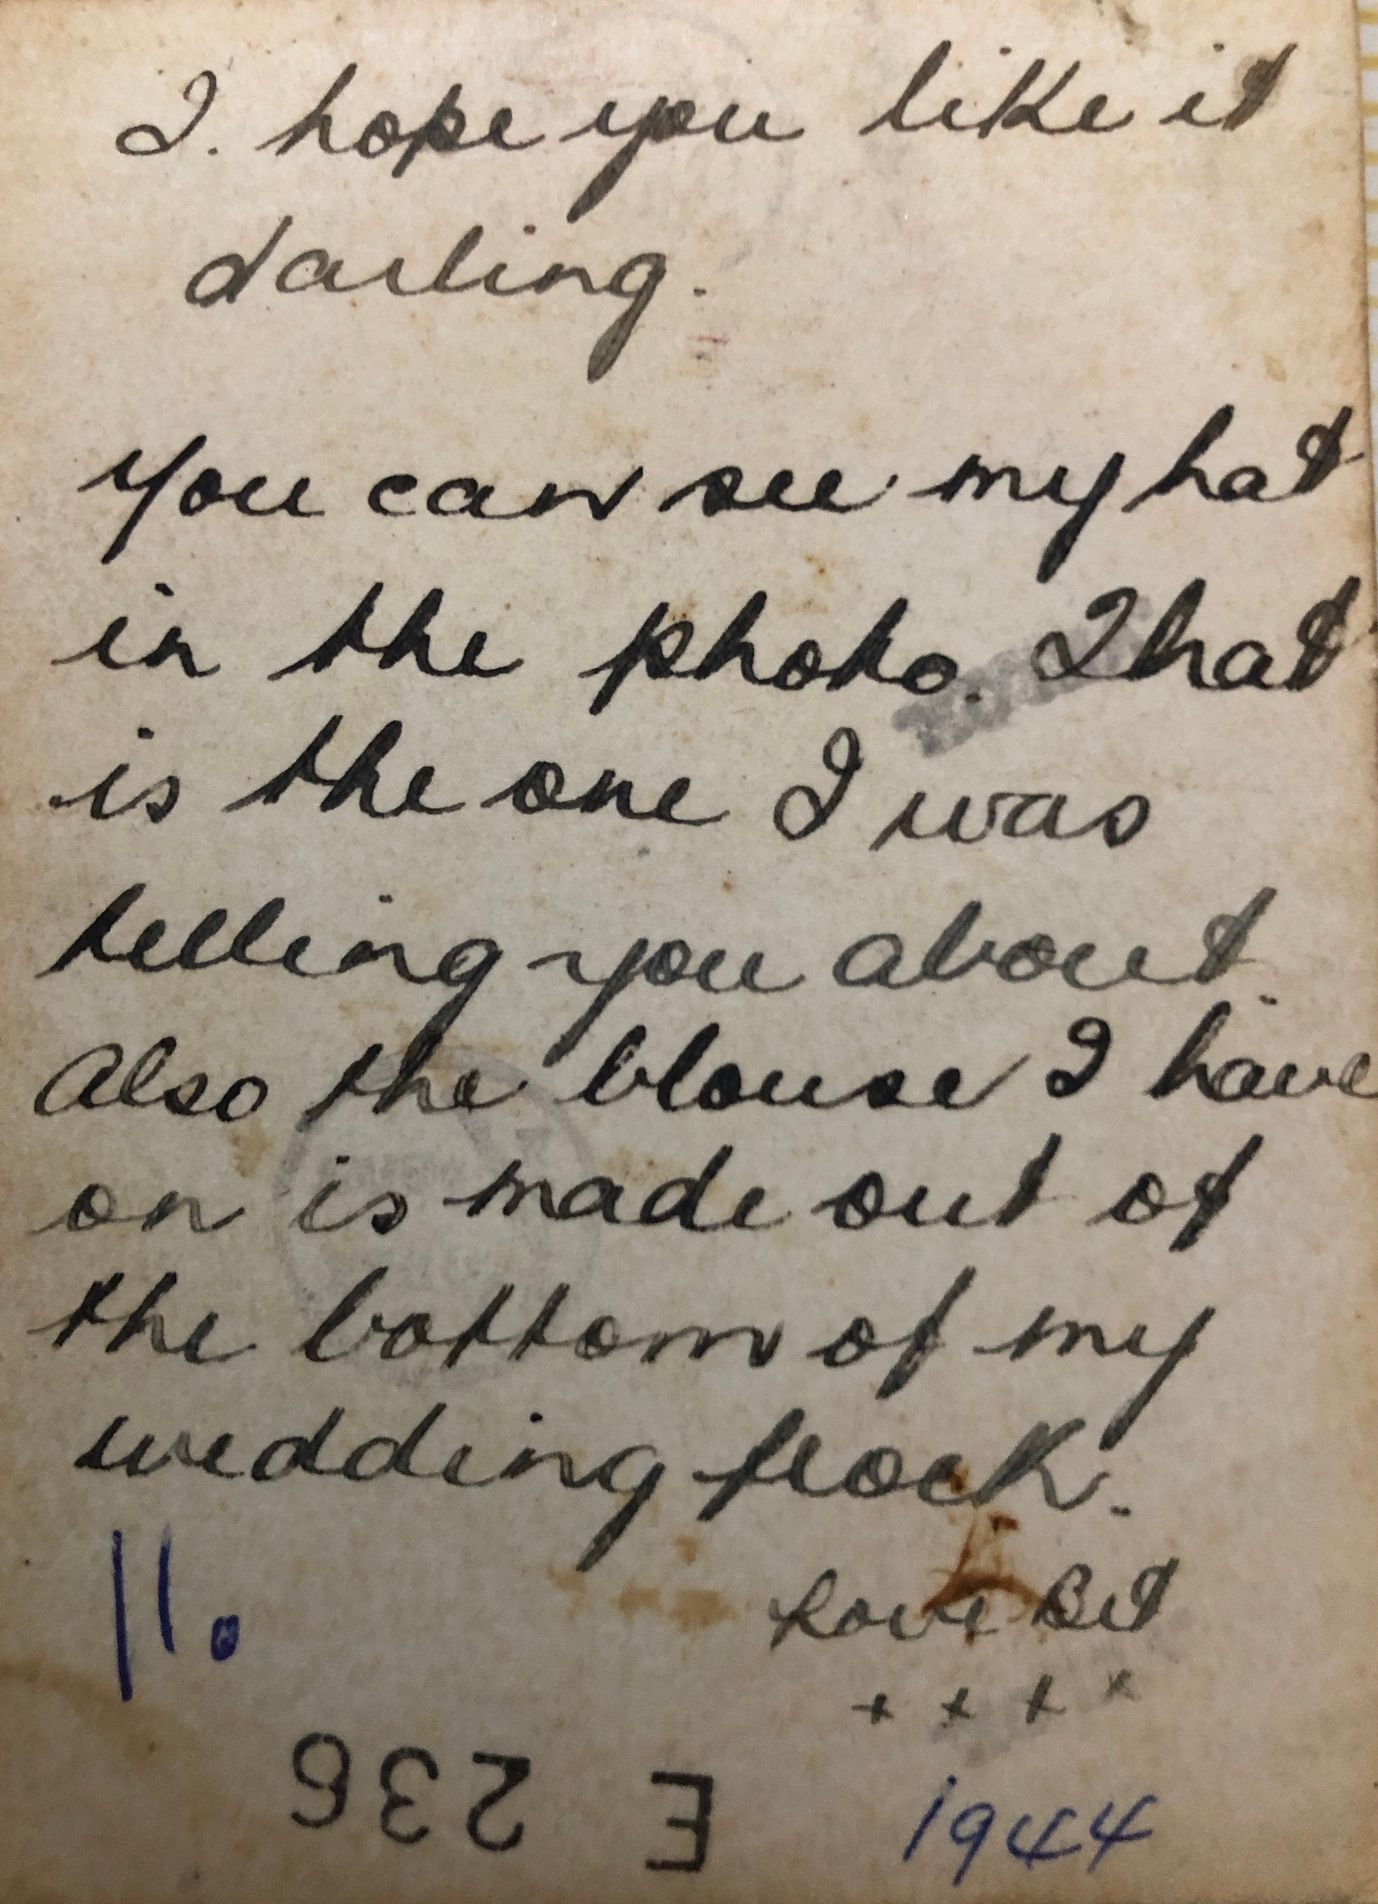 I. hope you like it
darling.
You can see my hat
in the photo. That
is the one I was
telling you about.
Also the blouse I have
on is made out of
the bottom of my
wedding frock.
Love Bet
+ + + x
11.
E 236
1944